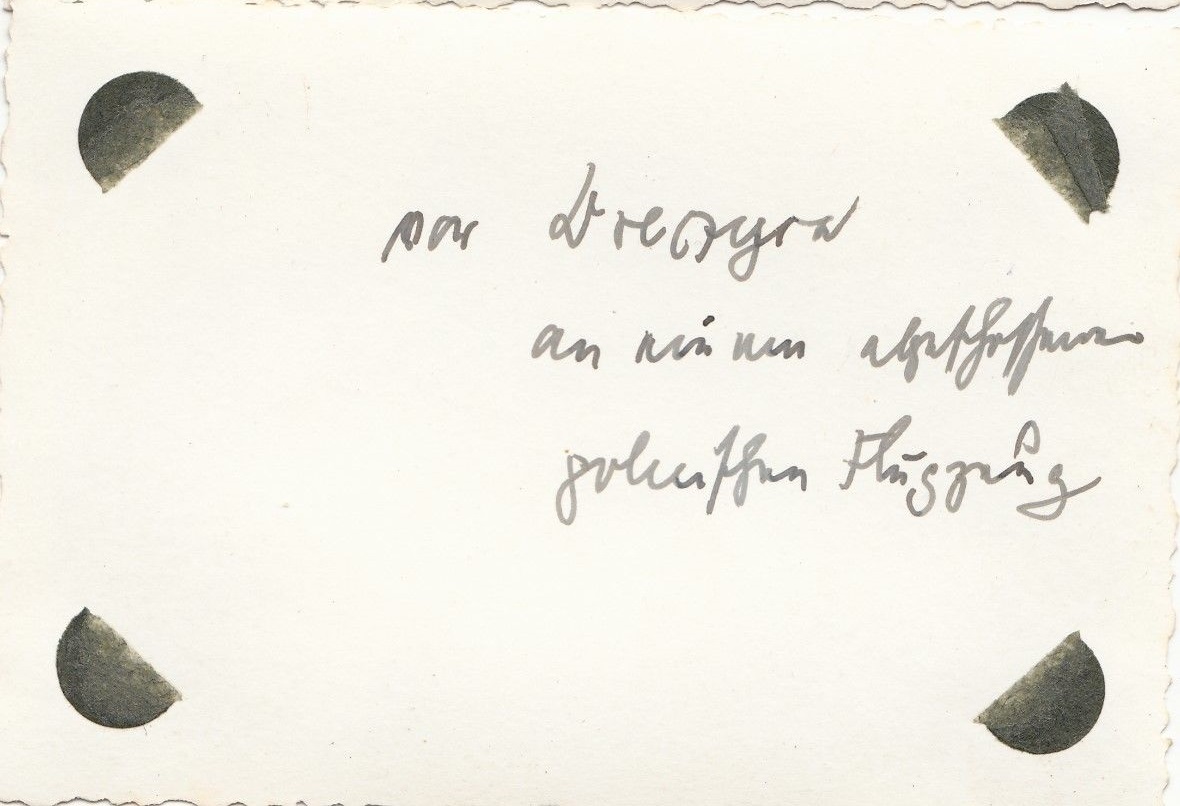 vor
an einem abgeschossenen
polnischen Flugzeug